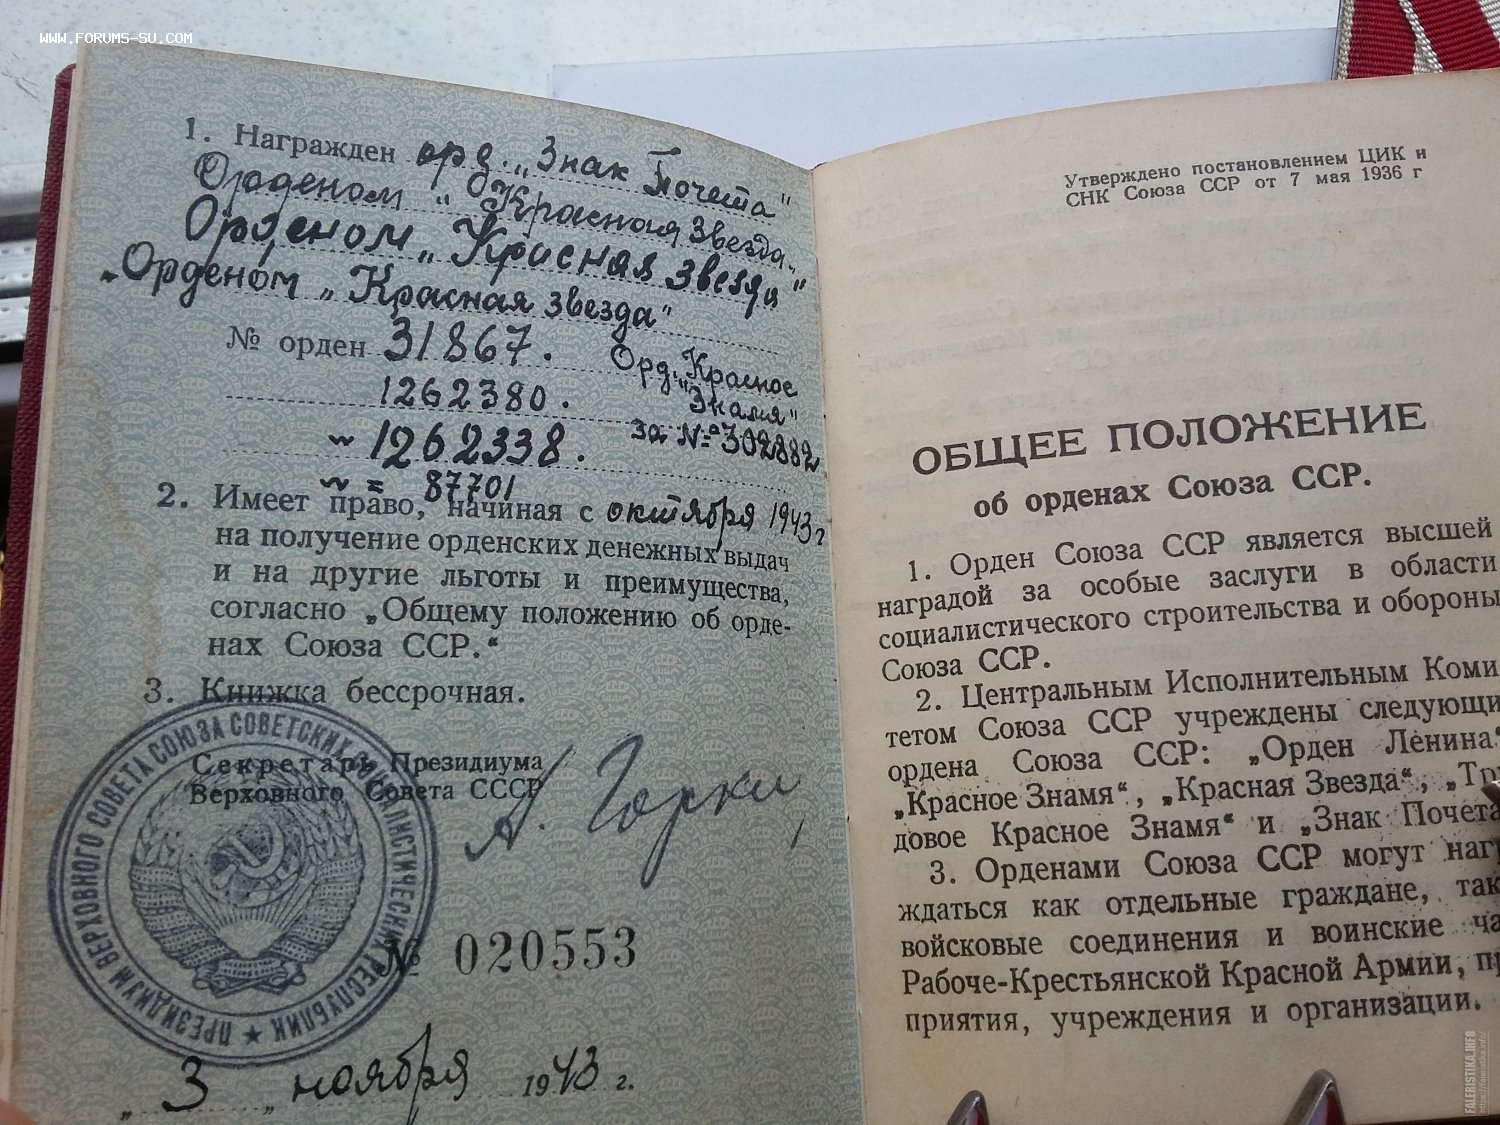 WWW.FORUMS-SU.COM
1. Награжден орд. „Знак Почета"
Орденом „Красная Звезда„
Орденом „Красная звезда"
„Орденом „Красная звезда"
№ орден 31867.
Орд. „Красное
Знамя"
за № 302882
1262380.
~ 1262338.
~ = 87701
2. Имеет право, начиная с октября 1943 г
на получение орденских денежных выдач
и на другие льготы и преимущества,
согласно „Общему положению об орде-
нах Союза ССР.“
3. Книжка бессрочная.
Секретарь Президиума
Верховного Совета СССР
А. Горкин
ПРЕЗИДИУМ ВЕРХОВНОГО СОВЕТА СОЮЗА СОВЕТСКИХ СОЦИАЛИСТИЧЕСКИХ РЕСПУБЛИК ★
№ 020553
„ 3 „ ноября 1943 г.
Утверждено постановлением ЦИК и
СНК Союза ССР от 7 мая 1936 г
ОБЩЕЕ ПОЛОЖЕНИЕ
об орденах Союза ССР.
1. Орден Союза ССР является высшей
наградой за особые заслуги в области
социалистического строительства и обороны
Союза ССР.
2. Центральным Исполнительным Коми
тетом Союза ССР учреждены следующи
ордена Союза ССР: „Орден Ленина“
„Красное Знамя“, „Красная Звезда“, „Тру
довое Красное Знамя“ и „Знак Почета
3. Орденами Союза ССР могут нагр
ждаться как отдельные граждане, так
войсковые соединения и воинские ча
Рабоче-Крестьянской Красной Армии, пр
приятия, учреждения и организации.
FALERISTIKA.INFO
https://faleristika.info/